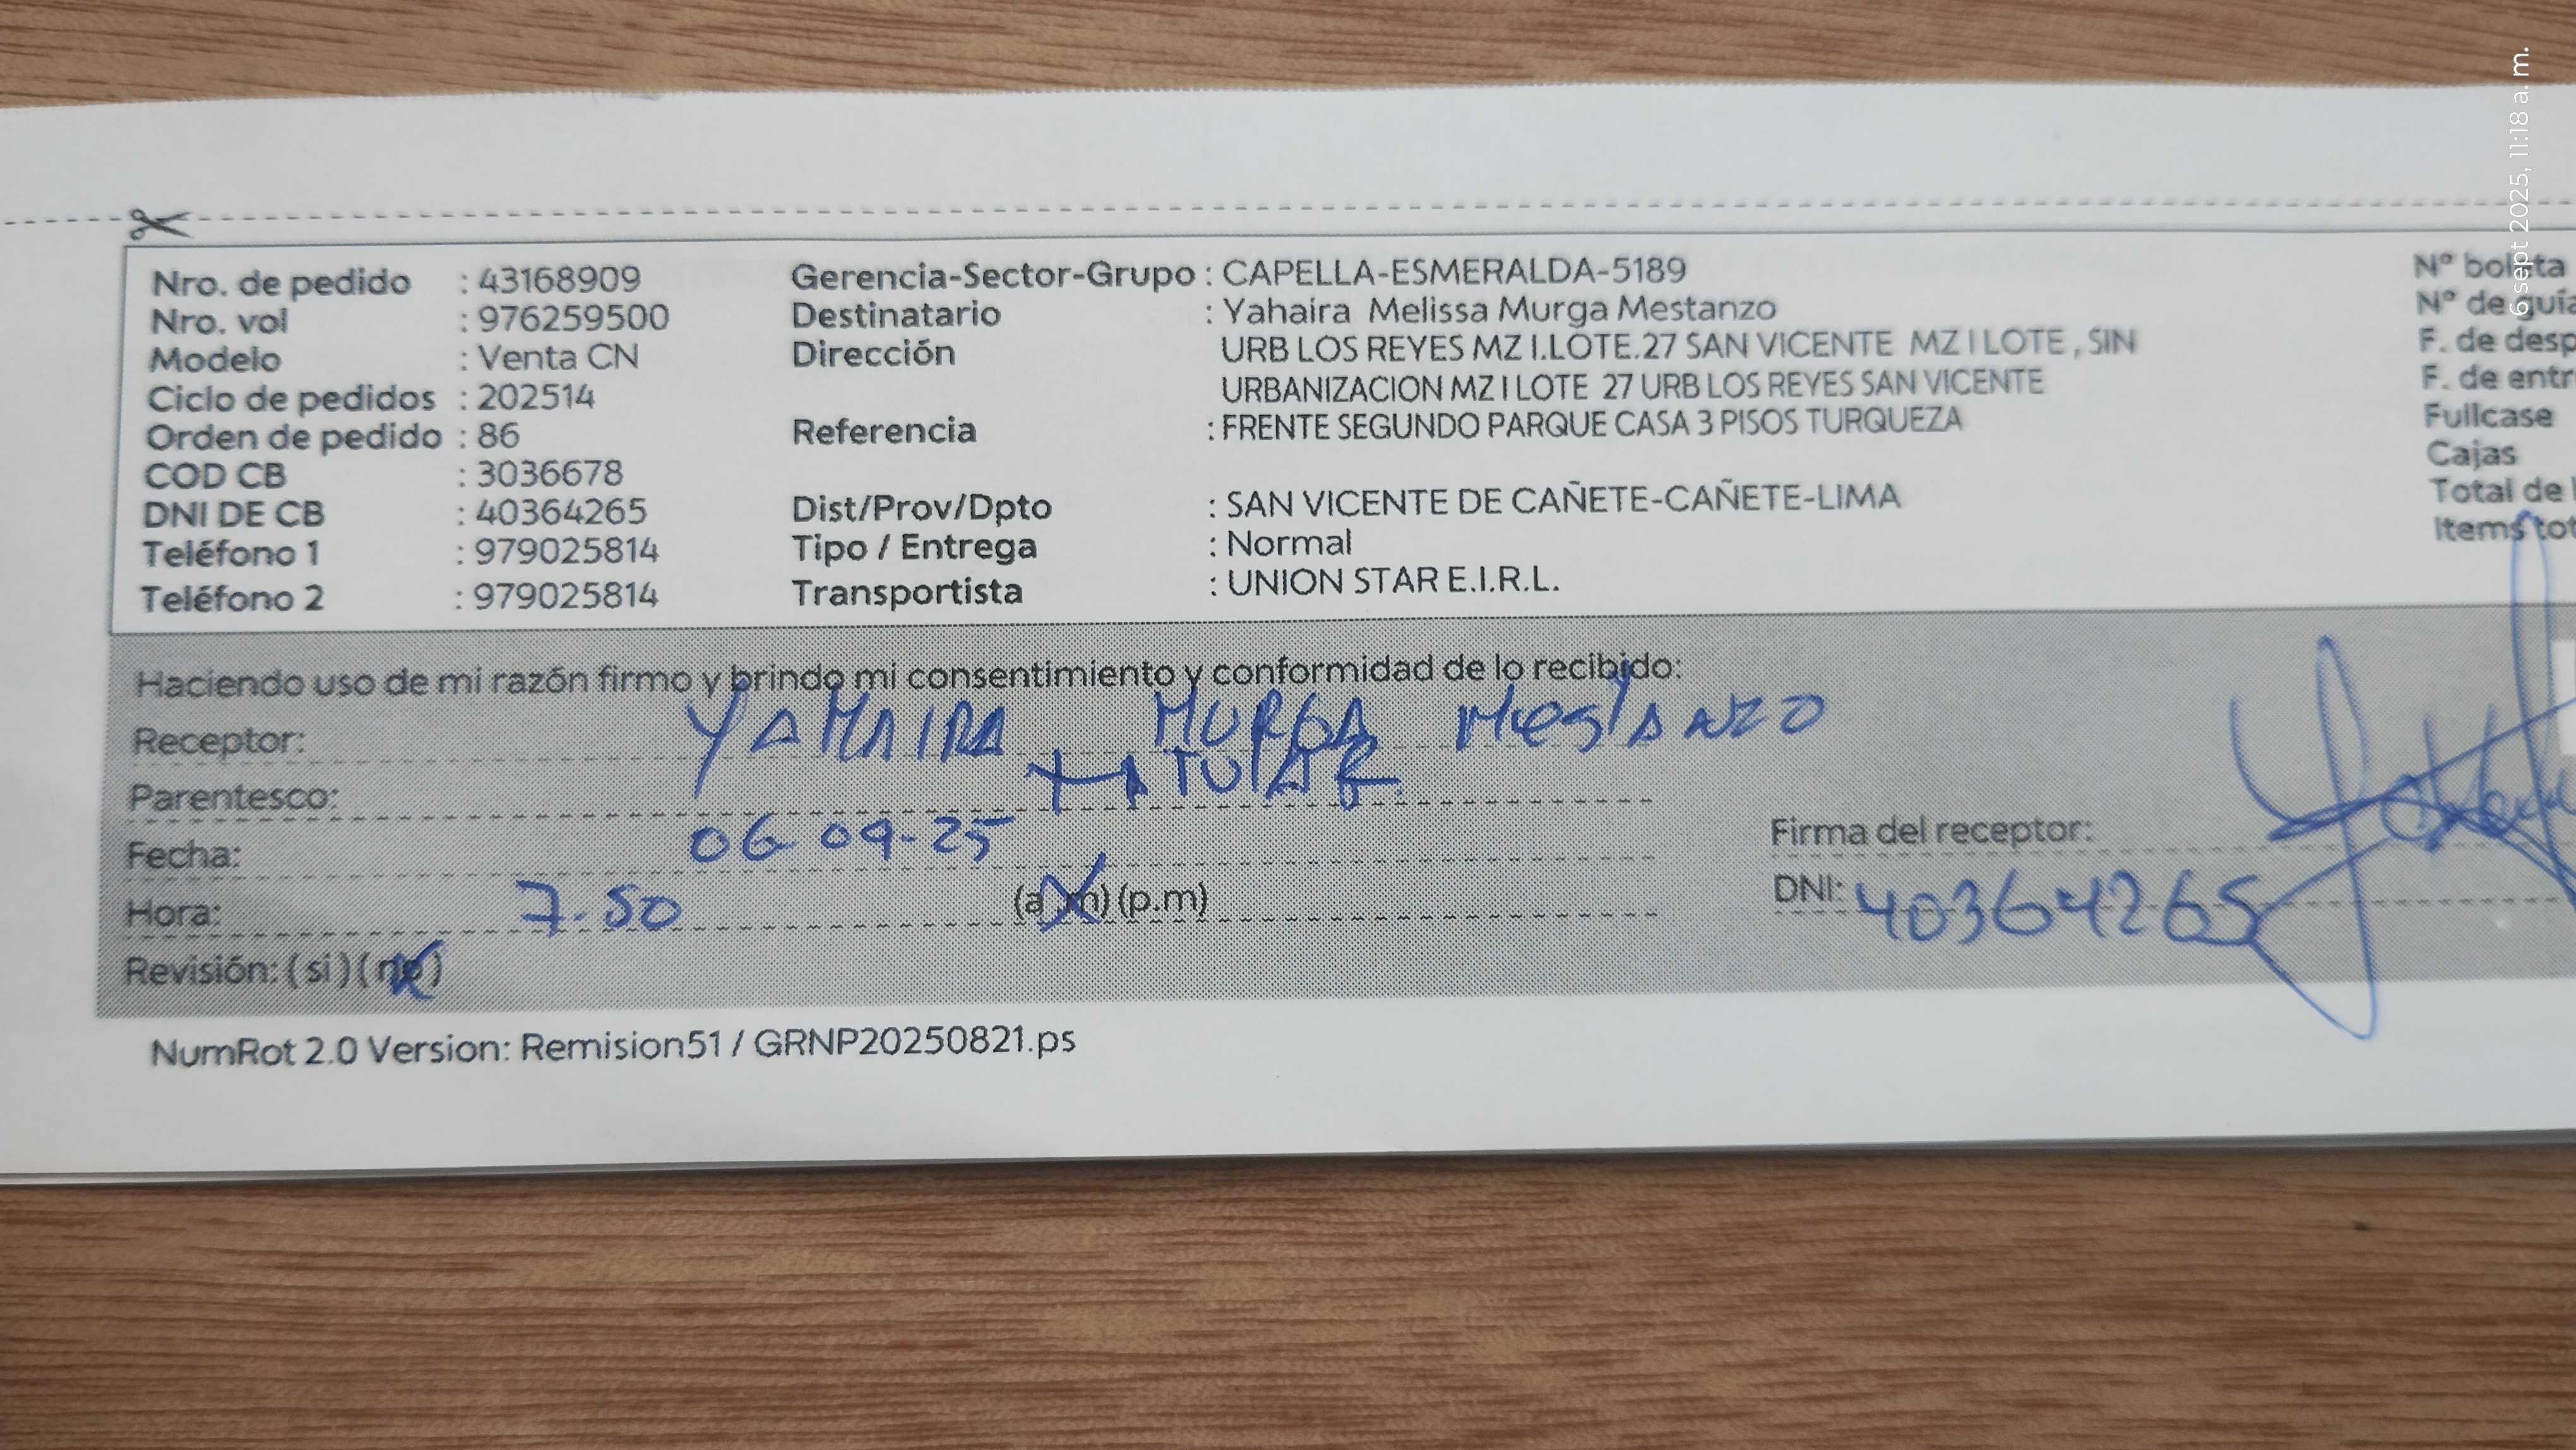 6 sept 2025, 11:18 a. m.
Nro. de pedido : 43168909 Gerencia-Sector-Grupo : CAPELLA-ESMERALDA-5189 Nº boleta
Nro. vol : 976259500 Destinatario : Yahaira Melissa Murga Mestanzo Nº de guía
Modelo : Venta CN Dirección URB LOS REYES MZ I.LOTE.27 SAN VICENTE MZ I LOTE , SIN F. de desp
Ciclo de pedidos : 202514 URBANIZACION MZ I LOTE 27 URB LOS REYES SAN VICENTE F. de entr
Orden de pedido : 86 Referencia : FRENTE SEGUNDO PARQUE CASA 3 PISOS TURQUEZA Fullcase
COD CB : 3036678 Cajas
DNI DE CB : 40364265 Dist/Prov/Dpto : SAN VICENTE DE CAÑETE-CAÑETE-LIMA Total de
Teléfono 1 : 979025814 Tipo / Entrega : Normal Items tot
Teléfono 2 : 979025814 Transportista : UNION STAR E.I.R.L.
Haciendo uso de mi razón firmo y brindo mi consentimiento y conformidad de lo recibido:
Receptor: YAHAIRA MURGA MESTANZO
Parentesco: TITULAR
Fecha: 06-09-25 Firma del receptor:
Hora: 7.50 (a.m) (p.m) DNI: 40364265
Revisión: (si) (no)
NumRot 2.0 Version: Remision51 / GRNP20250821.ps